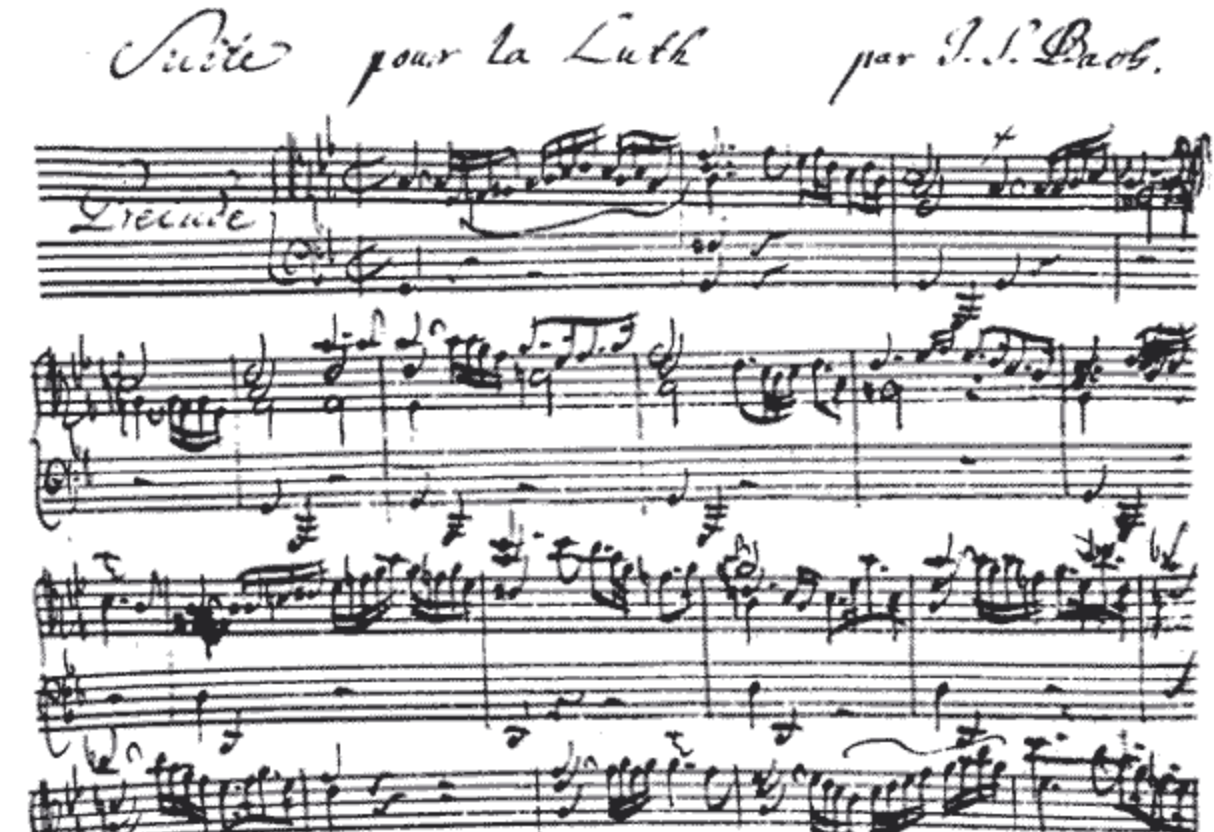 Suite pour la Luth par J. S. Bach.
Prelude